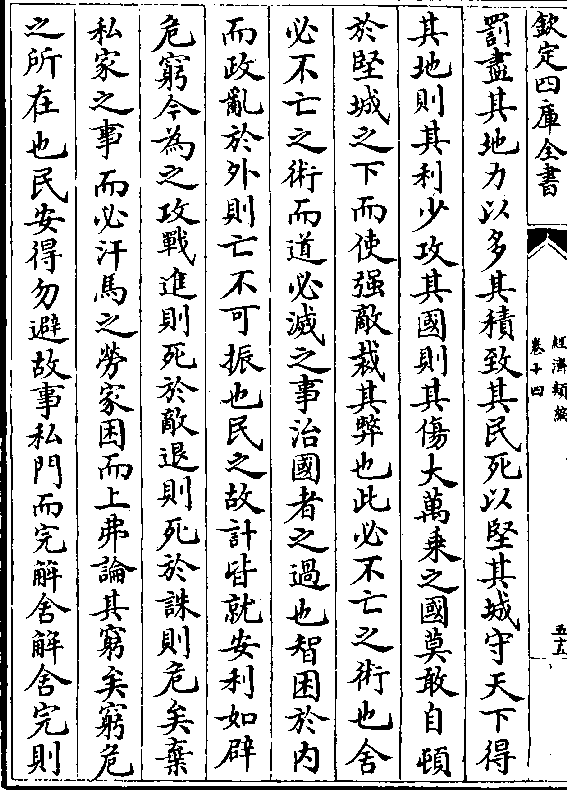 欽定四庫全書
經濟類編
卷十四
五十五
罰盡其地力以多其積致其民死以堅其城守天下得
其地則其利少攻其國則其傷大萬乘之國莫敢自頓
於堅城之下而使强敵裁其弊也此必不亡之術也舍
必不亡之術而道必滅之事治國者之過也智困於內
而政亂於外則亡不可振也民之故計皆就安利如辟
危窮今為之攻戰進則死於敵退則死於誅則危矣棄
私家之事而必汗馬之勞家困而上弗論其窮矣窮危
之所在也民安得勿避故事私門而完解舍解舍完則